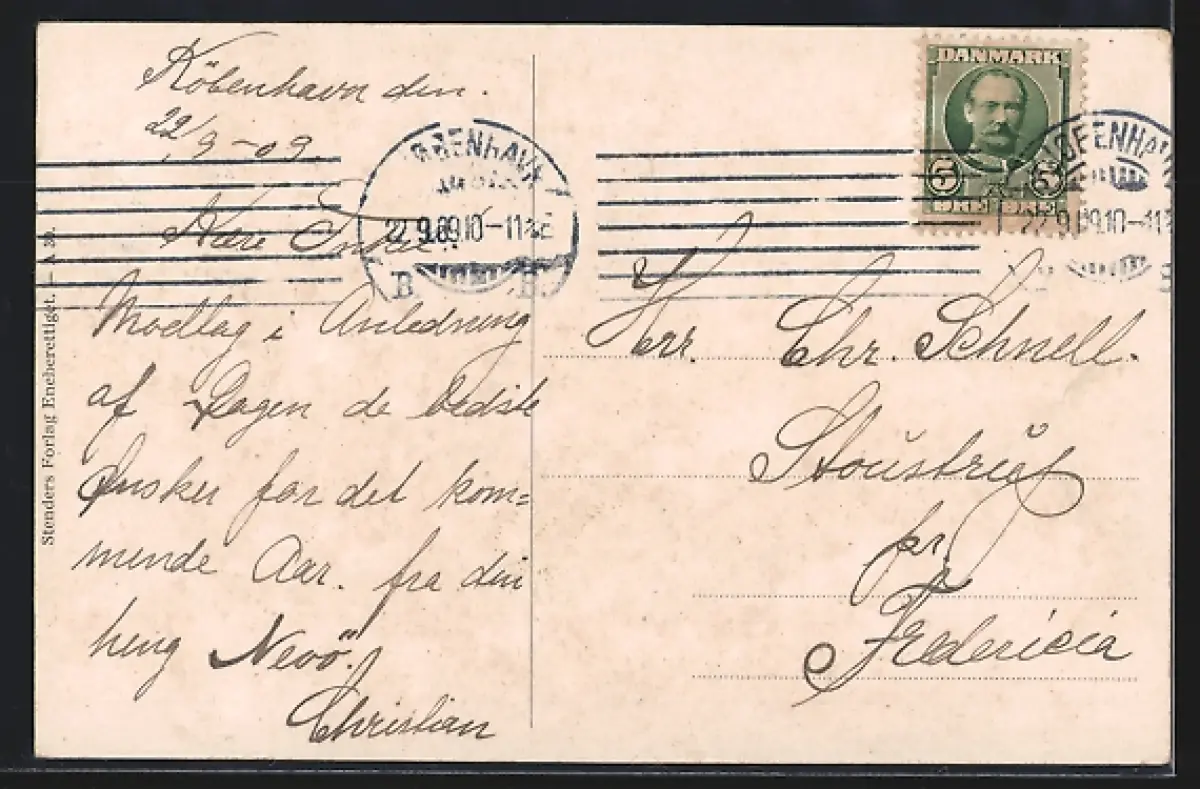 København den.
22/9-09.
Kære Onkel.
Modtag i Anledning
af Dagen de bedste
Ønsker for det kom=
mende Aar. fra din
heng. Nevö.
Christian
Stenders Forlag Eneberettiget. — A 30.
KØBENHAVN
22.9.09.10-11
B B
DANMARK
5 5
ØRE ØRE
KØBENHAVN
22.9.09.10-11
Herr. Chr. Schnell.
Stoustrup
pr.
Fredericia